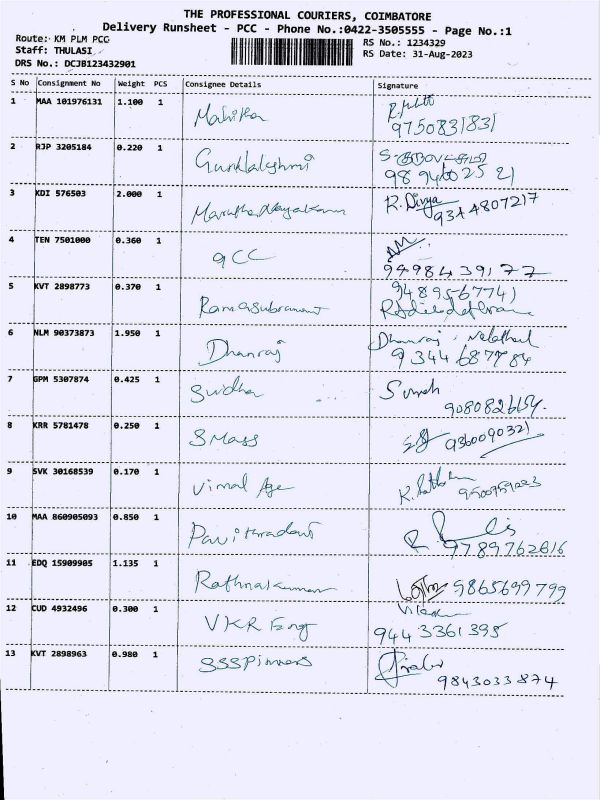 THE PROFESSIONAL COURIERS, COIMBATORE
Delivery Runsheet - PCC - Phone No.:0422-3505555 - Page No.:1
Route: KM PLM PCC
RS No.: 1234329
Staff: THULASI
RS Date: 31-Aug-2023
DRS No.: DCJB123432901
S No Consignment No Weight PCS Consignee Details Signature
1 MAA 101976131 1.100 1
9750831831
2 RJP 3205184 0.220 1 Gurulakshmi
3 KDI 576503 2.000 1 R. Divya
9344807217
4 TEN 7501000 0.360 1 9CC
9498439177
5 KVT 2898773 0.370 1 Ramasubramani
9489567741
6 NLM 90373873 1.950 1 Dhanraj Dhanraj
9344687784
7 GPM 5307874 0.425 1 Sudha
8 KRR 5781478 0.250 1 S Mass 9360090321
9 SVK 30168539 0.170 1 Vimal Age
10 MAA 860905093 0.850 1
9789762816
11 EDQ 15909905 1.135 1 Rathnakumar 9865699799
12 CUD 4932496 0.300 1 VKR
9443361395
13 KVT 2898963 0.980 1 SSSPinners
9843033874